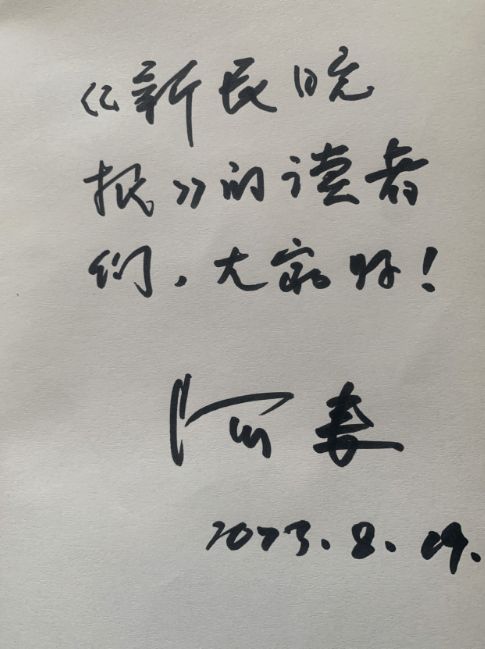 《新民晚
报》的读者
们，大家好！
阿来
2023.8.19.